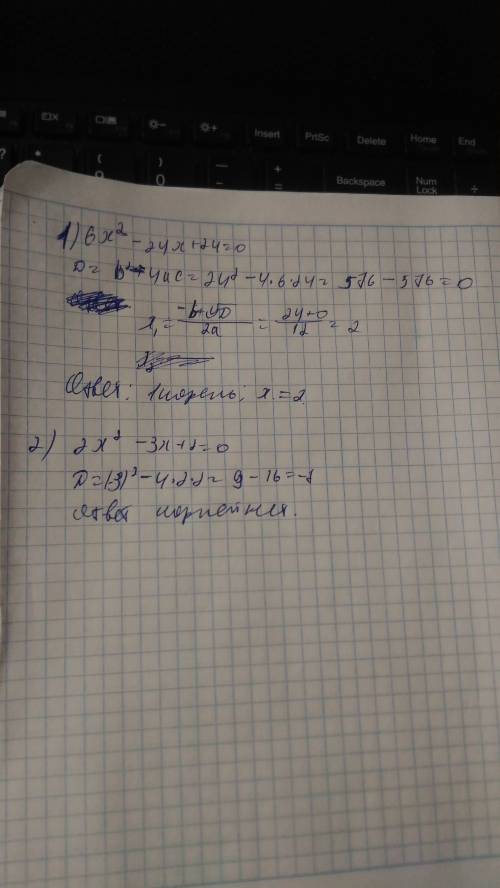 Insert PrtSc Delete Home End
Backspace Num Lock
1) 6x² - 24x + 24 = 0
D = b² - 4ac = 24² - 4·6·24 = 576 - 576 = 0
x₁ = (-b+√D)/2a = (24+0)/12 = 2
Ответ: 1 корень; x = 2
2) 2x² - 3x + 2 = 0
D = (-3)² - 4·2·2 = 9 - 16 = -7
Ответ корней нет.